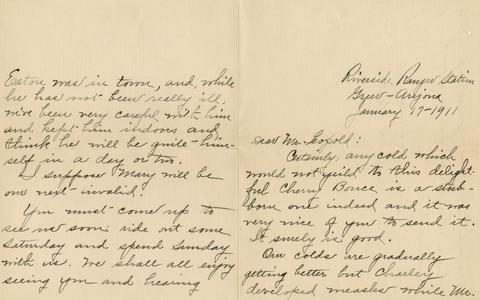 Riverside Ranger Station
Greer - Arizona
January 17-1911
Dear Mr. Leopold:
Certainly any cold which
would not yield to this delight-
ful Cherry Bounce is a stub-
born one indeed and it was
very nice of you to send it.
It surely is good.
Our colds are gradually
getting better but Charley
developed measles while Mr.
Eaton was in town, and, while
he has not been really ill,
we've been very careful with him
and kept him indoors and
think he will be quite him-
self in a day or two.
I suppose Mary will be
our next invalid.
You must come up to
see us soon ride out some
Saturday and spend Sunday
with us. We shall all enjoy
seeing you and hearing